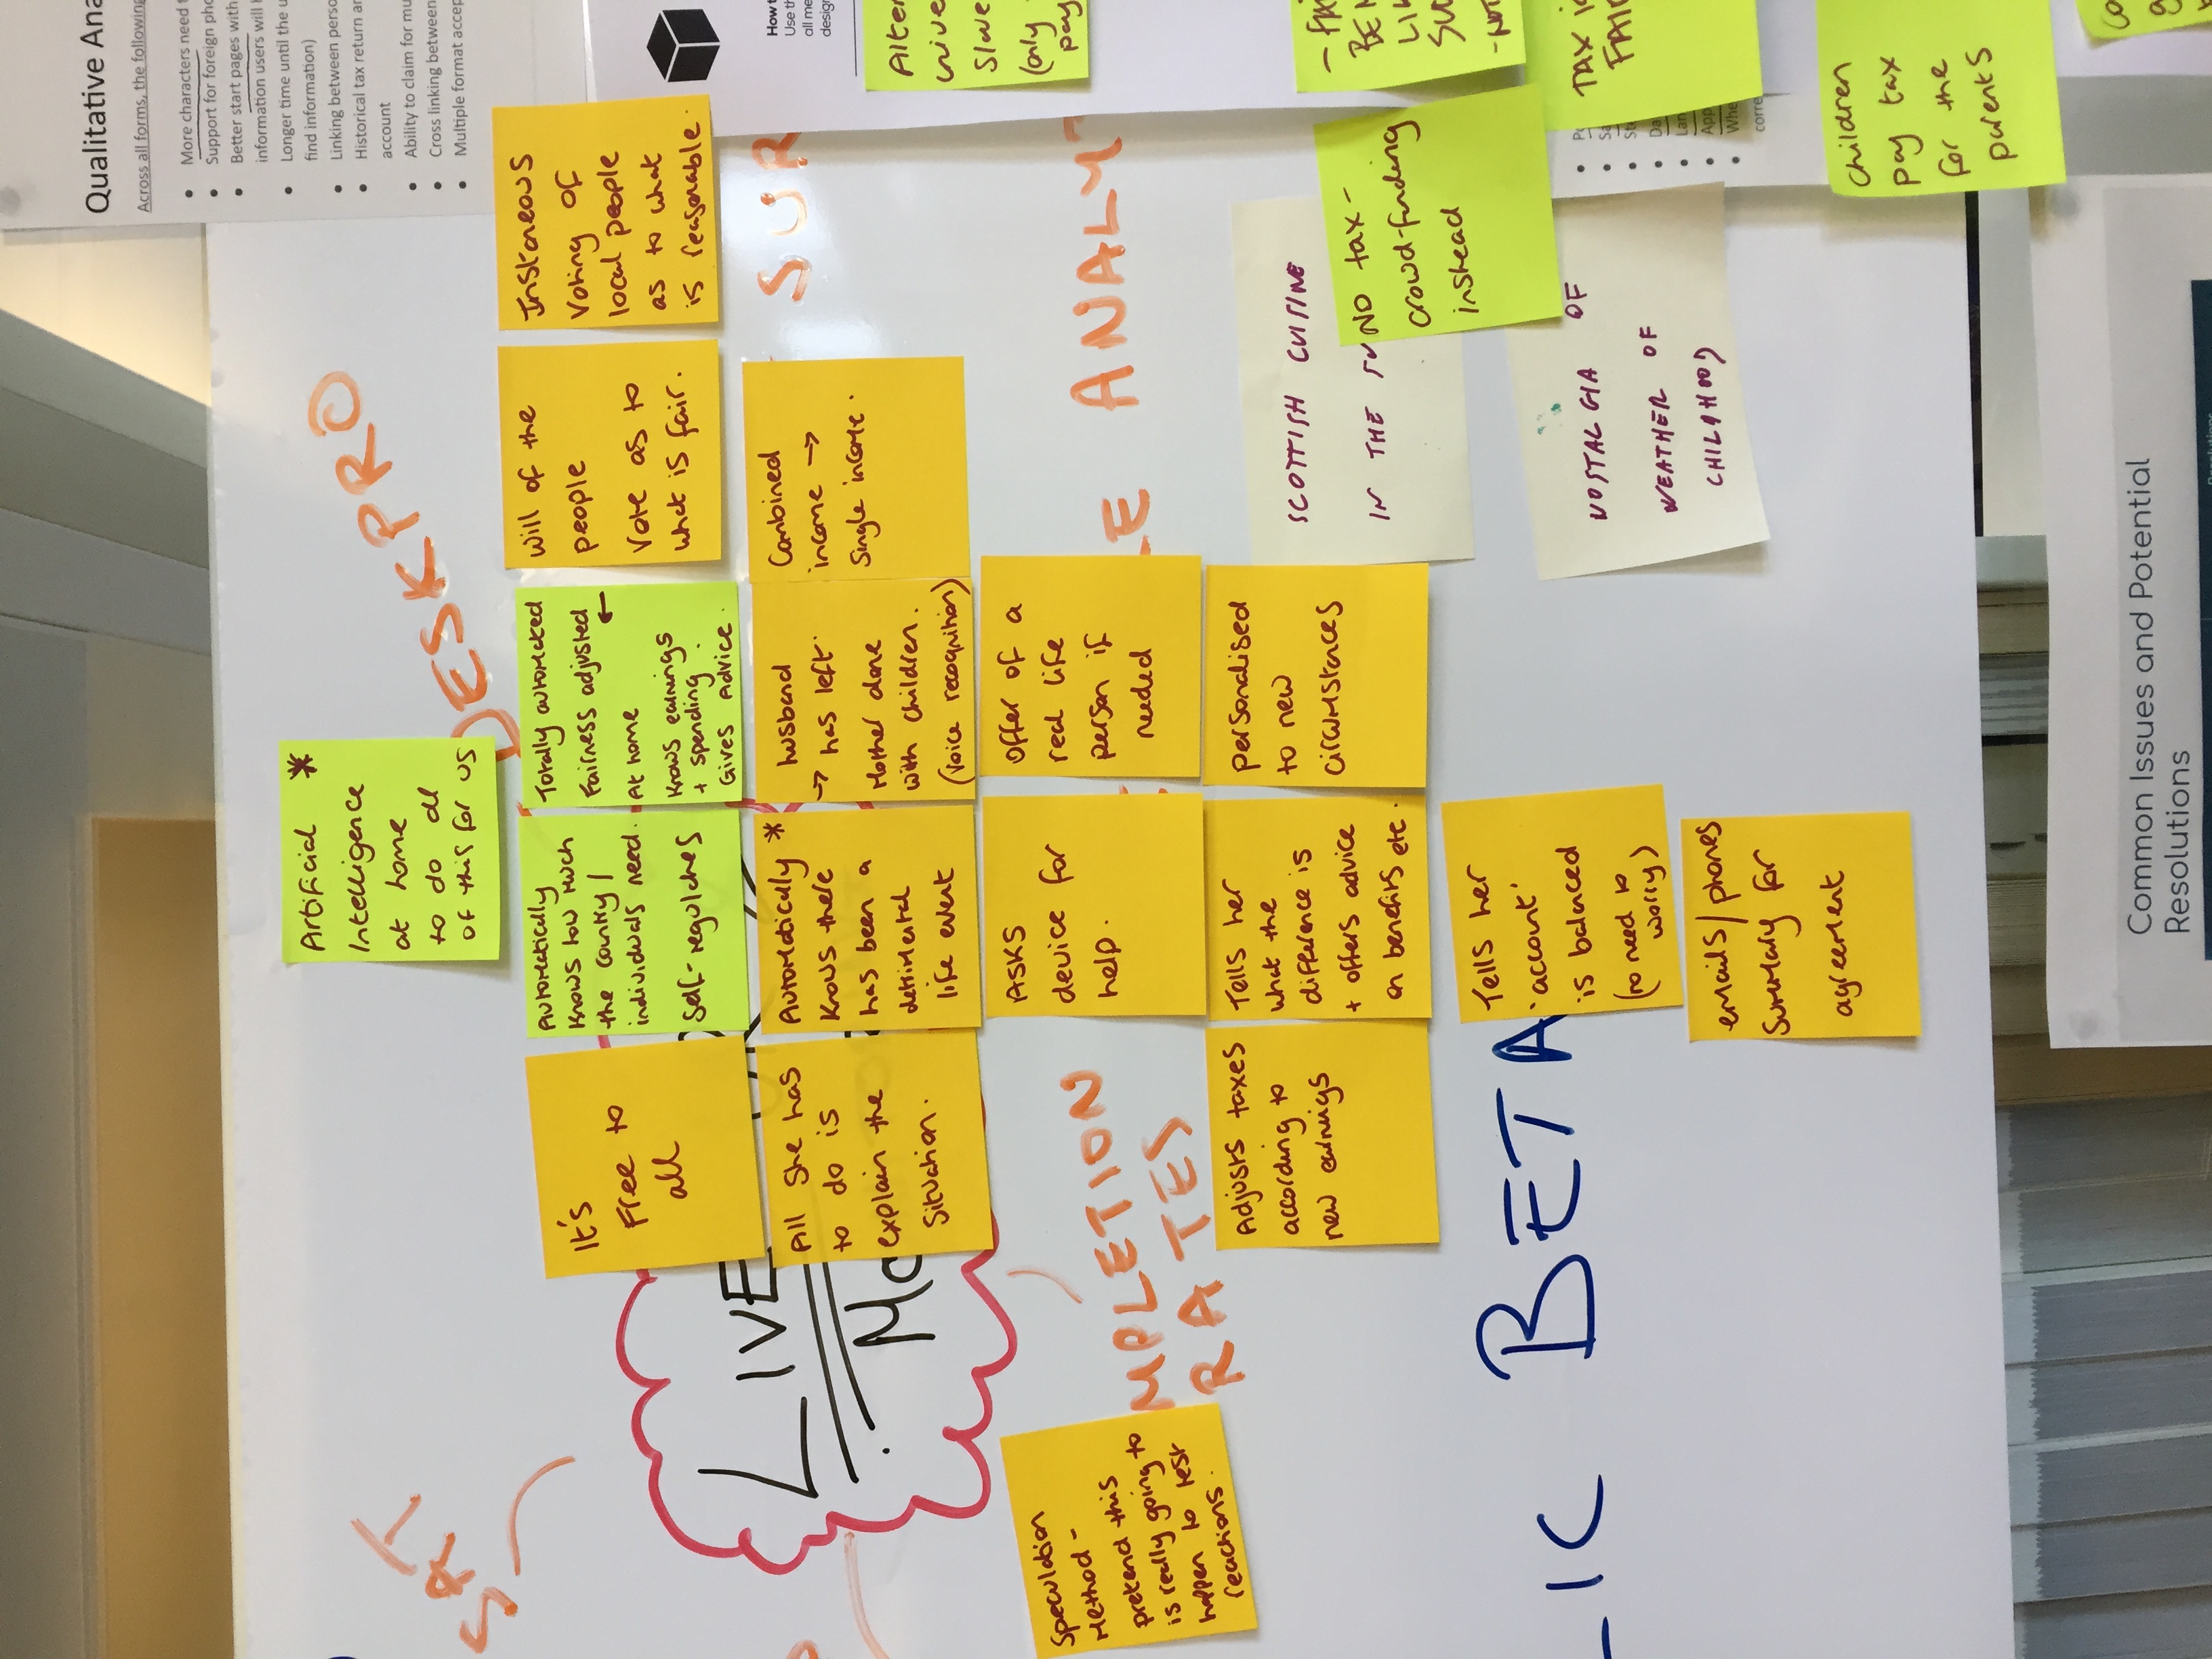 Qualitative
Across all forms, the following
More characters need
Support for foreign
Better start pages with
information users will
Longer time until the
find information)
Linking between
Historical tax return
account
Ability to claim for
Cross linking between
Multiple format
SAT
DESKPRO
Artificial *
Intelligence
at home
to do all
of this for us
It's
Free to
all
Automatically
Knows how much
the country /
individuals need.
Self-regulates
Totally automated
Fairness adjusted
←
At home
Knows earnings
+ spending.
Gives Advice.
Will of the
people
Vote as to
what is fair.
Instaneous
Voting of
local people
as to what
is reasonable.
LIVE
All she has
to do is
explain the
Situation.
Automatically *
Knows there
has been a
detrimental
life event
husband
→ has left.
Mother alone
with children.
(voice recognition)
Combined
income →
Single income.
How
Use
all
Speculation
Method -
pretend this
is really going to
happen to test
reactions.
MPLETION
RATES
Asks
device for
help.
offer of a
real life
person if
needed
Adjusts taxes
according to
new earnings
Tells her
what the
difference is
+ offers advice
on benefits etc.
personalised
to new
circumstances
SCOTTISH CUISINE
IN THE
NO tax-
crowd-funding
instead
(only
pay
LIC BETA
Tells her
'account'
is balanced
(no need to
worry)
NOSTALGIA OF
WEATHER OF
CHILDHOOD
TAX
emails/phones
Summary for
agreement
Children
pay tax
for the
parents
Common Issues and Potential
Resolutions